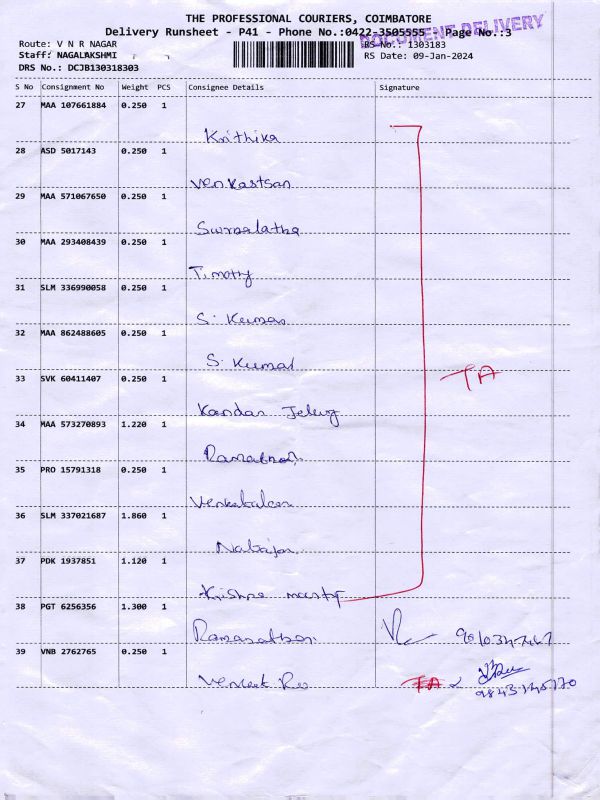 THE PROFESSIONAL COURIERS, COIMBATORE
DOCUMENT DELIVERY
Delivery Runsheet - P41 - Phone No.:0422-3505555 - Page No.:3
Route: V N R NAGAR RS No.: 1303183
Staff: NAGALAKSHMI RS Date: 09-Jan-2024
DRS No.: DCJB130318303
S No Consignment No Weight PCS Consignee Details Signature
27 MAA 107661884 0.250 1
Krithika
28 ASD 5017143 0.250 1
Venkastsan
29 MAA 571067650 0.250 1
30 MAA 293408439 0.250 1
Timothy
31 SLM 336990058 0.250 1
S. Kumar
32 MAA 862488605 0.250 1
S. Kumar
33 SVK 60411407 0.250 1
TA
Kandan
34 MAA 573270893 1.220 1
35 PRO 15791318 0.250 1
36 SLM 337021687 1.860 1
37 PDK 1937851 1.120 1
38 PGT 6256356 1.300 1
39 VNB 2762765 0.250 1
TA